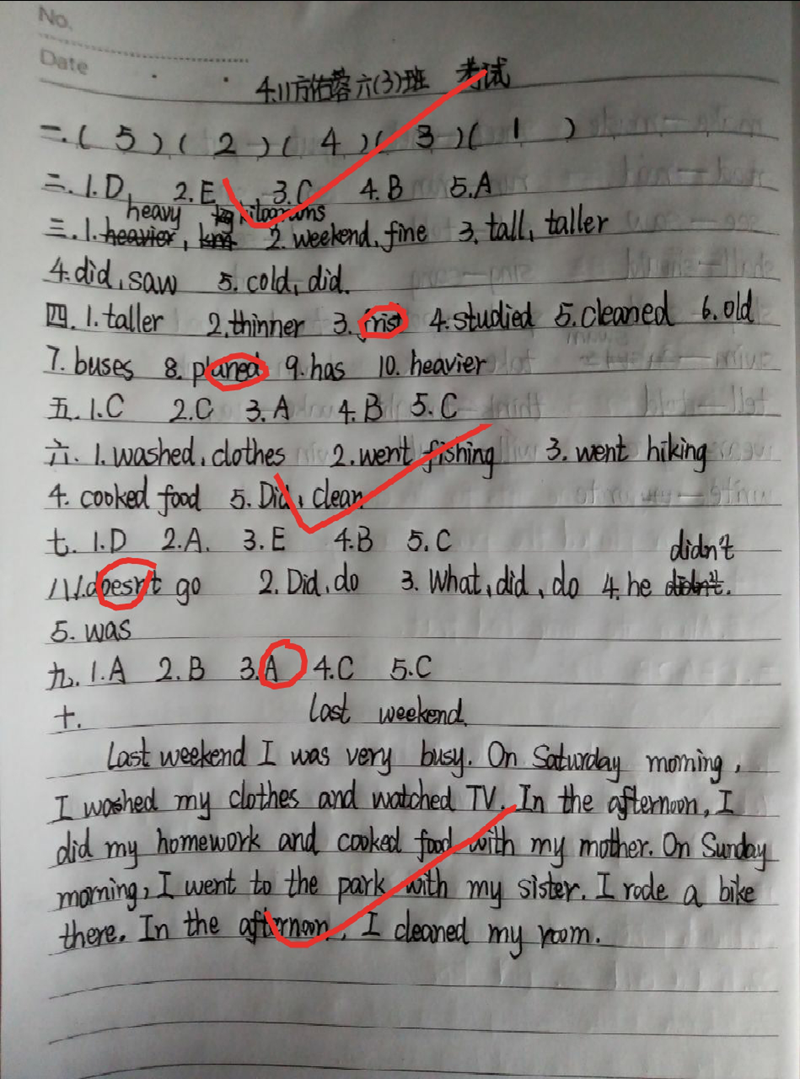 No.
Date
4.11方佑蓉六(3)班 考试
一.( 5 )( 2 )( 4 )( 3 )( 1 )
二.1.D 2.E 3.C 4.B 5.A
heavy kilograms
三.1.heavier, 2. weekend, fine 3. tall, taller
4.did, saw 5. cold, did.
四.1.taller 2.thinner 3. frist 4.studied 5.cleaned 6.old
7. buses 8. planed 9. has 10. heavier
五.1.C 2.C 3.A 4.B 5.C
六. 1. washed, clothes 2. went fishing 3. went hiking
4. cooked food 5. Did, clean
七. 1.D 2.A. 3.E 4.B 5.C
didn't
八1.doesn't go 2. Did, do 3. What, did, do 4. he didn't.
5. was
九.1.A 2.B 3.A 4.C 5.C
十. Last weekend.
Last weekend I was very busy. On Saturday morning,
I washed my clothes and watched TV. In the afternoon, I
did my homework and cooked food with my mother. On Sunday
morning, I went to the park with my sister. I rode a bike
there. In the afternoon, I cleaned my room.